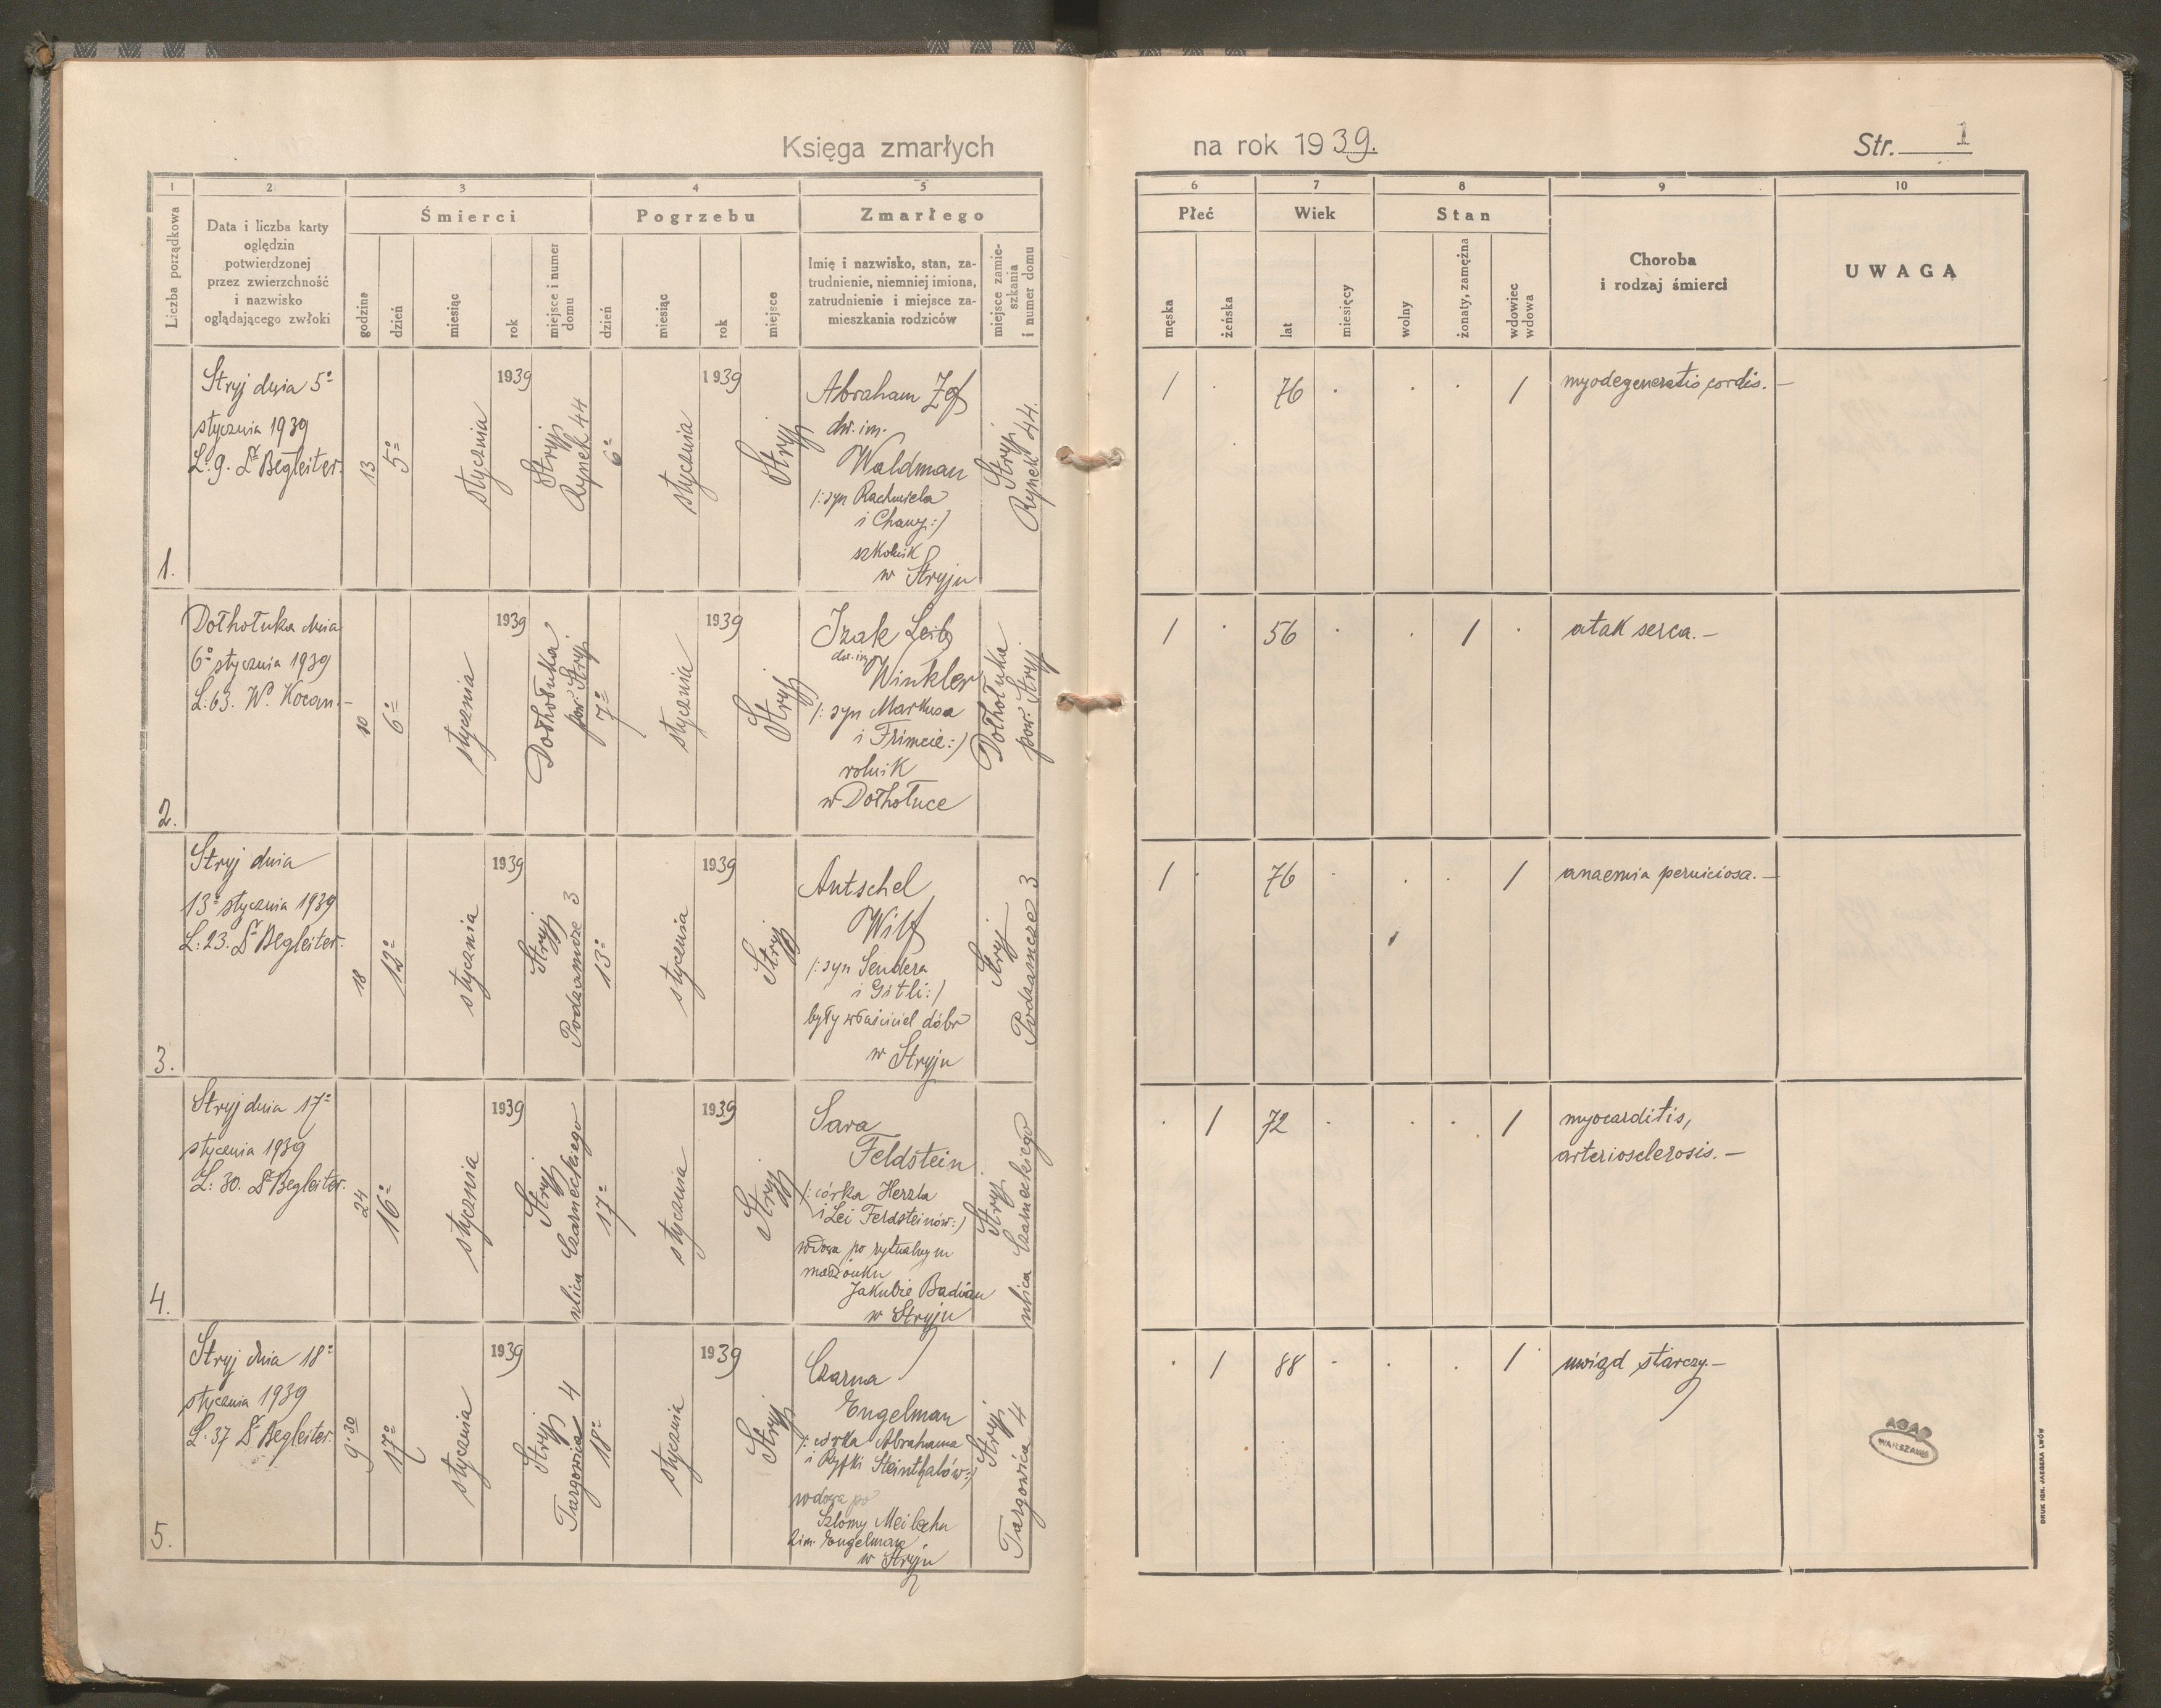 Księga zmarłych na rok 1939. Str. 1
1 2 3 4 5 6 7 8 9 10
Liczba porządkowa
Data i liczba karty
oględzin
potwierdzonej
przez zwierzchność
i nazwisko
oglądającego zwłoki
Śmierci
godzina
dzień
miesiąc
rok
miejsce i numer
domu
Pogrzebu
dzień
miesiąc
rok
miejsce
Zmarłego
Imię i nazwisko, stan, za-
trudnienie, niemniej imiona,
zatrudnienie i miejsce za-
mieszkania rodziców
miejsce zamie-
szkania
i numer domu
Płeć
męska
żeńska
Wiek
lat
miesięcy
Stan
wolny
żonaty, zamężna
wdowiec
wdowa
Choroba
i rodzaj śmierci
UWAGA
1.
Stryj dnia 5º
stycznia 1939
L. 9. Dr Begleiter.
13
5º
stycznia
1939
Stryj
Rynek 44
6º
stycznia
1939
Stryj
Abraham
dw. im.
Waldman
/: syn Rachmiela
i Chany :/
szkolnik
w Stryju
Stryj
Rynek 44.
/ . 76 . . . / myodegeneratio cordis. –
2.
Dołhołuka dnia
6º stycznia 1939
L: 63. Wº. Kocan. –
10
6º
stycznia
1939
Dołhołuka
pow. Stryj
7º
stycznia
1939
Stryj
Izak Leib
dw. im.
Winkler
/: syn Markusa
i Frimcie :/
rolnik
w Dołhołuce
Dołhołuka
pow. Stryj
/ . 56 . . / . atak serca. –
3.
Stryj dnia
13º stycznia 1939
L: 23. Dr Begleiter.
18
12º
stycznia
1939
Stryj
Podzamcze 3
13º
stycznia
1939
Stryj
Antschel
Wilf
/: syn Sendera
i Gitli :/
były właściciel dóbr
w Stryju
Stryj
Podzamcze 3
/ . 76 . . . / anaemia perniciosa. –
4.
Stryj dnia 17º
stycznia 1939
L: 30. Dr Begleiter.
24
16º
stycznia
1939
Stryj
ulica Czarneckiego
17º
stycznia
1939
Stryj
Sara
Feldstein
/: córka Herzla
i Lei Feldsteinów :/
wdowa po rytualnym
małżonku
Jakubie Badian
w Stryju
Stryj
ulica Czarneckiego
. / 72 . . . / myocarditis,
arteriosclerosis. –
5.
Stryj dnia 18º
stycznia 1939
L. 37 Dr Begleiter.
9.30
17º
stycznia
1939
Stryj
Targowica 4
18º
stycznia
1939
Stryj
Czarna
Engelman
/: córka Abrahama
i Ryfki Steinthalów :/
wdowa po
Szlomy Meilecha
2 im. Engelman
w Stryju
Stryj
Targowica 4
. / 88 . . . / uwiąd starczy. –
AGAD
WARSZAWA
DRUK IGN. JAEGERA LWÓW